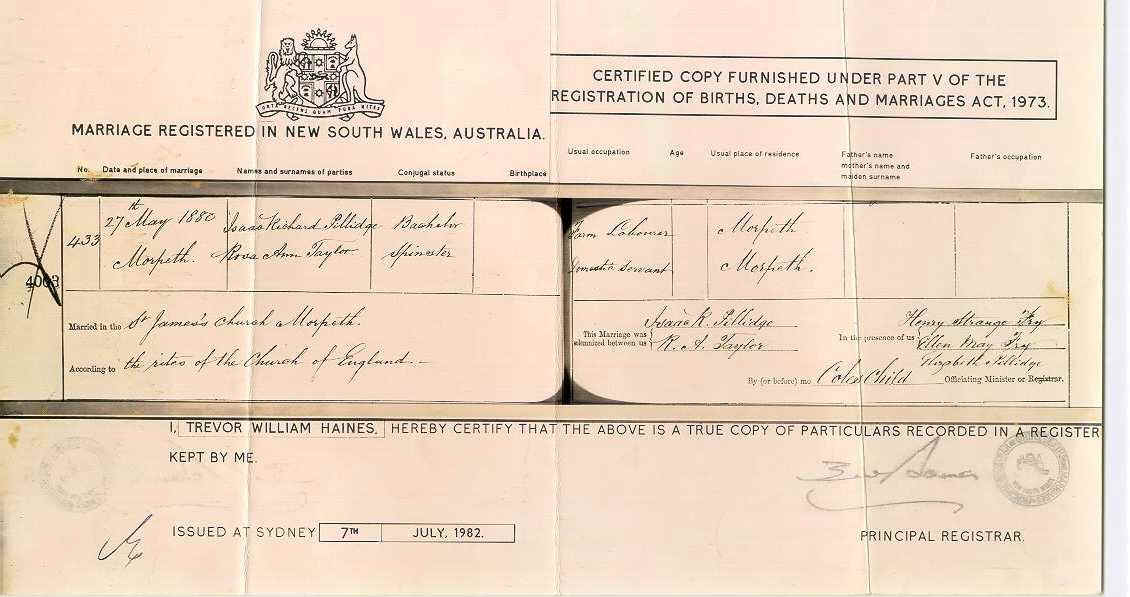 ORTA RECENS QUAM PURA NITES
MARRIAGE REGISTERED IN NEW SOUTH WALES, AUSTRALIA.
CERTIFIED COPY FURNISHED UNDER PART V OF THE
REGISTRATION OF BIRTHS, DEATHS AND MARRIAGES ACT, 1973.
No. Date and place of marriage Names and surnames of parties Conjugal status Birthplace Usual occupation Age Usual place of residence Father's name Father's occupation
mother's name and
maiden surname
433 27th May 1880 Isaac Richard Pillidge Bachelor Farm Labourer Morpeth
Morpeth. Rosa Ann Taylor Spinster Domestic Servant Morpeth.
4003
Married in the St James's Church Morpeth.
According to the rites of the Church of England.
This Marriage was solemnized between us
Isaac R. Pillidge
R. A. Taylor
In the presence of us
Henry Strange Fry
Ellen May Fry
Elizabeth Pillidge
By (or before) me Coles Child Officiating Minister or Registrar.
I, TREVOR WILLIAM HAINES, HEREBY CERTIFY THAT THE ABOVE IS A TRUE COPY OF PARTICULARS RECORDED IN A REGISTER
KEPT BY ME.
ISSUED AT SYDNEY 7TH JULY, 1982.
PRINCIPAL REGISTRAR.